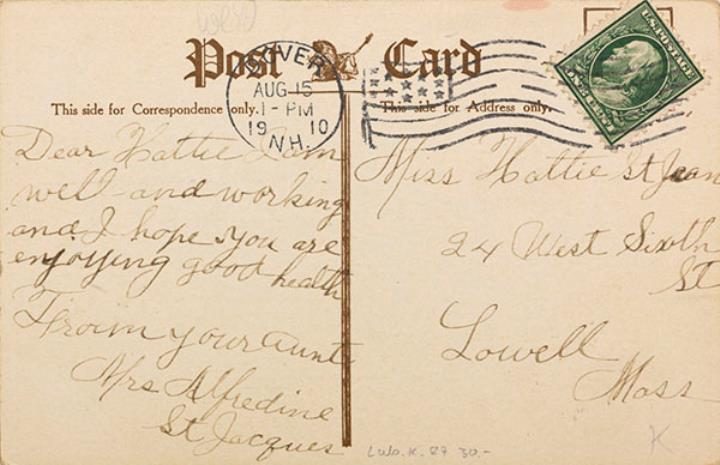 Post Card
DOVER
AUG 15
1 - PM
1910
N.H.
U.S. POSTAGE
ONE CENT
This side for Correspondence only.
This side for Address only.
Dear Hattie I am
well and working
and I hope you are
enjoying good health
From your Aunt
Mrs Alfredine
St Jacques
Miss Hattie St Jean
24 West Sixth
St
Lowell
Mass
K